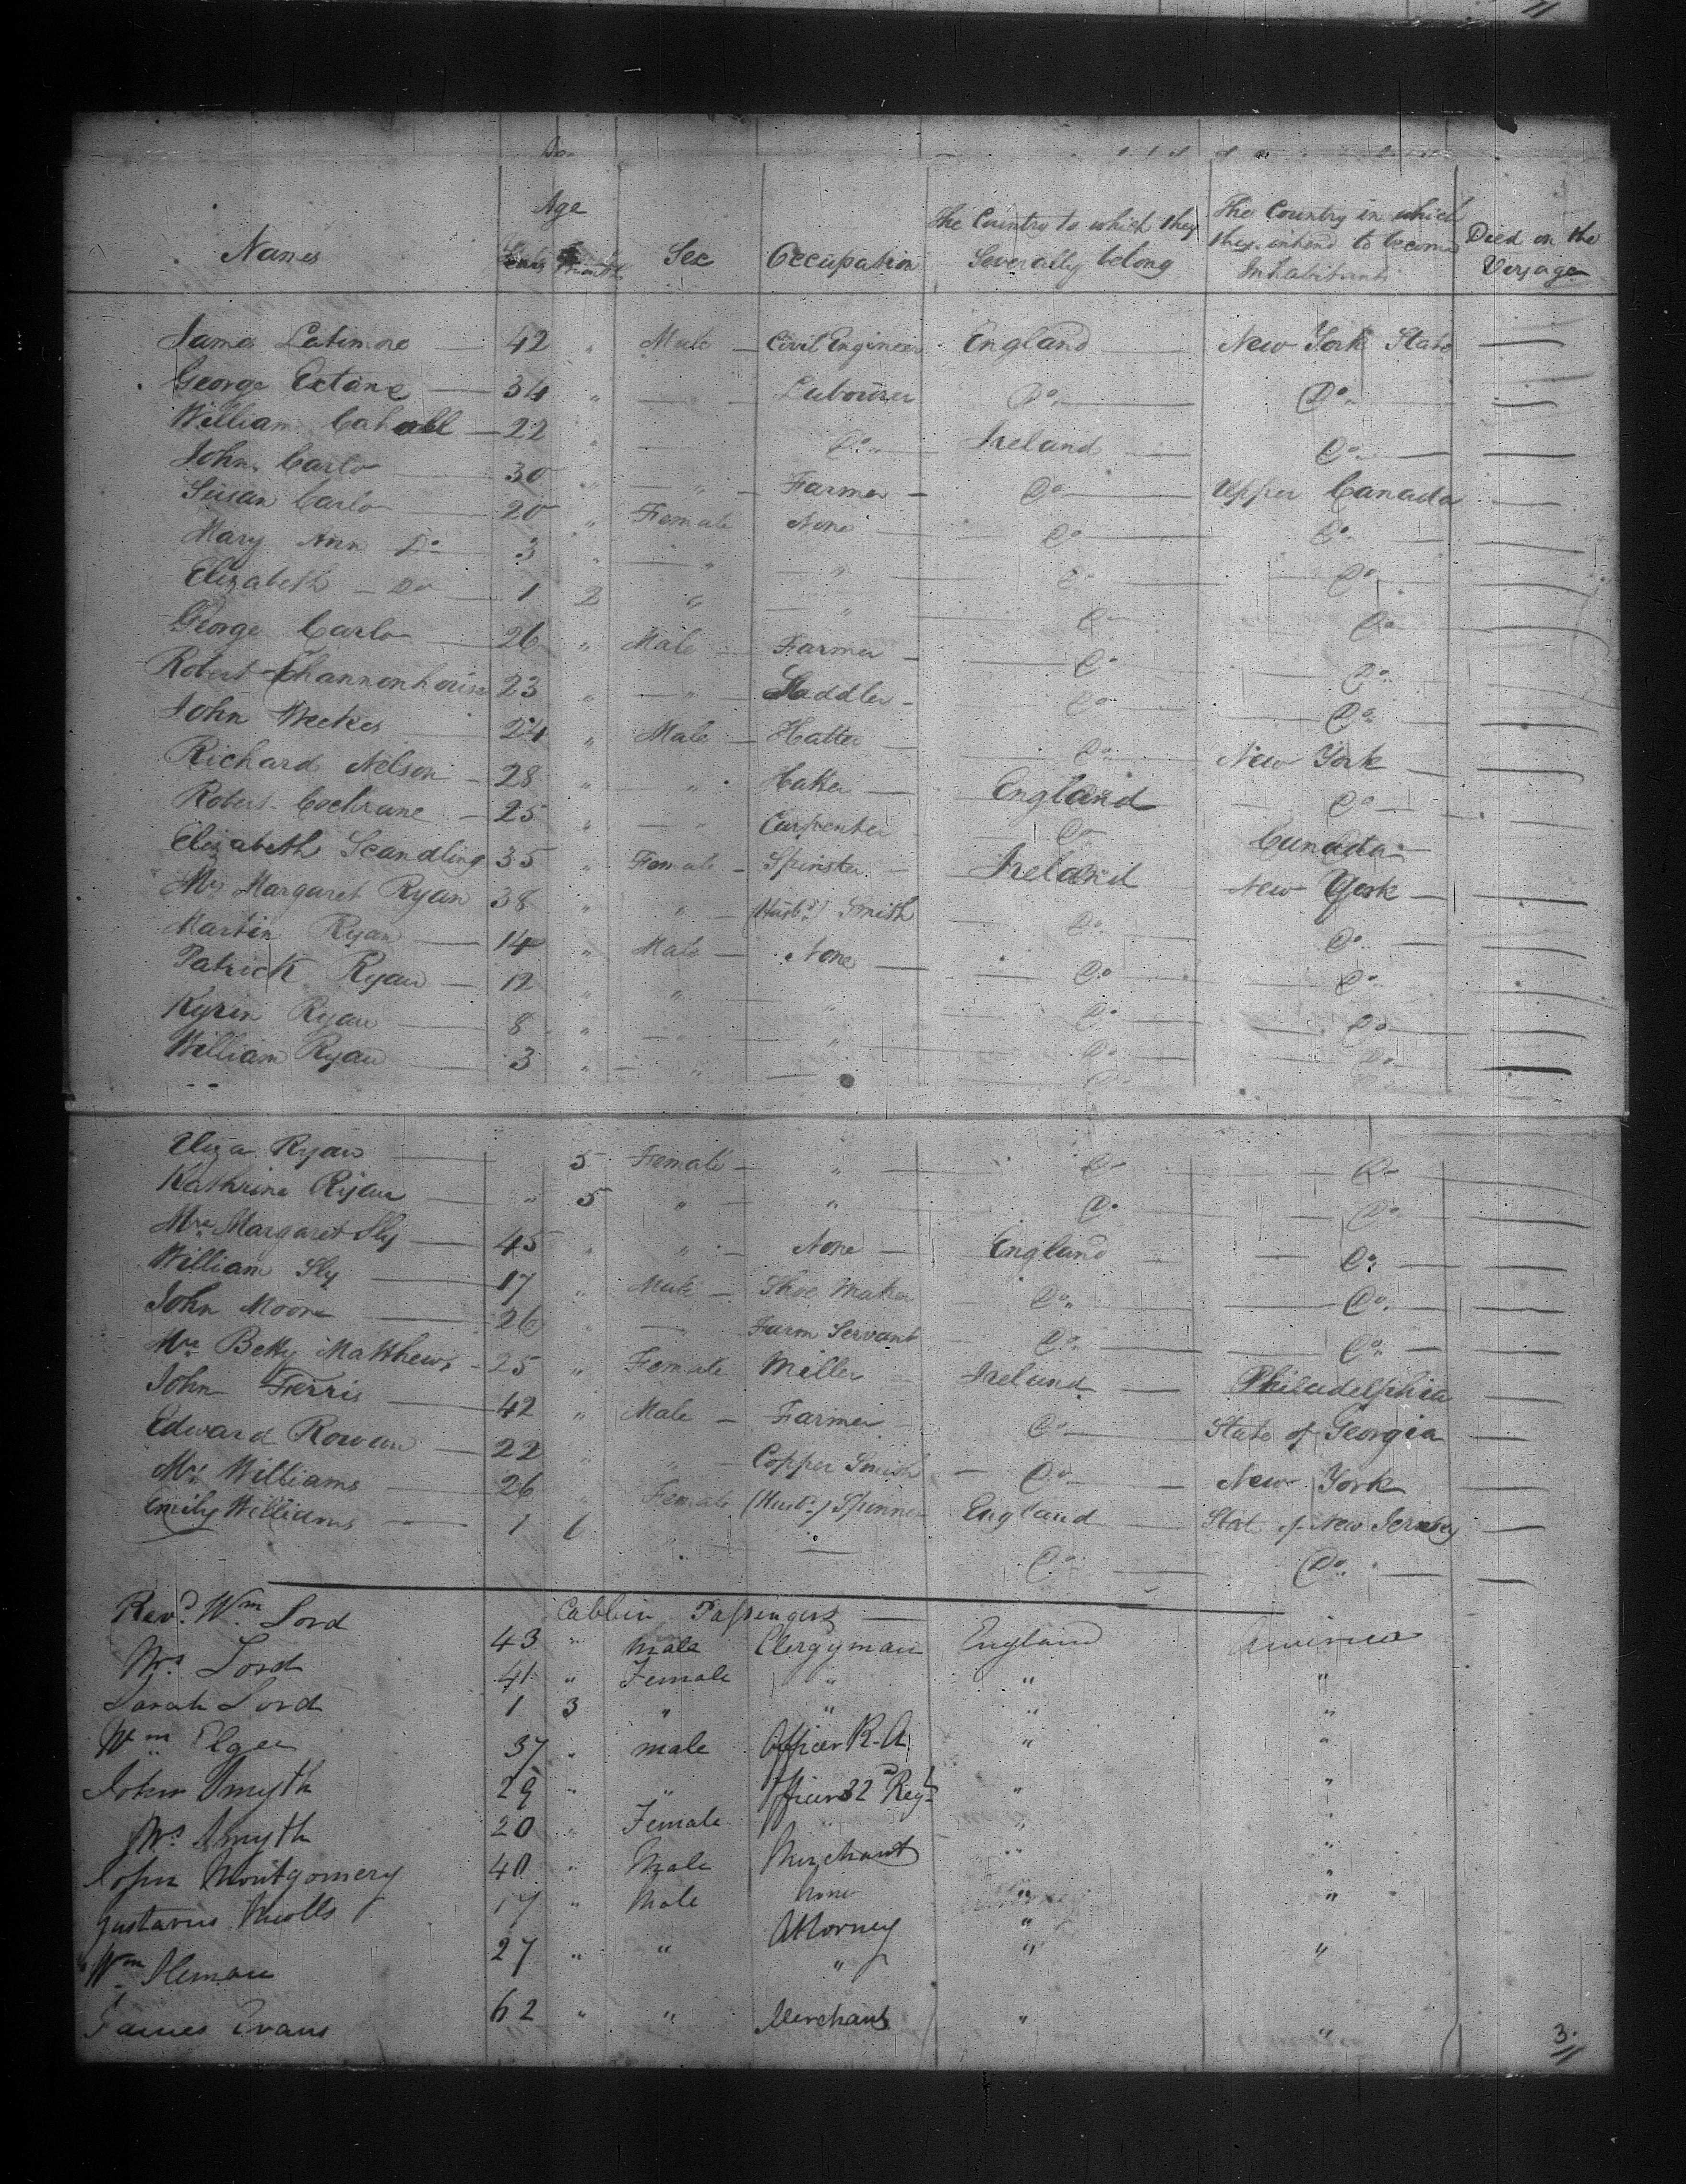 Names Age Years & Months Sex Occupation The Country to which they Severally belong The Country in which they intend to become Inhabitants Died on the Voyage
James Latimore — 42 " Male — Civil Engineer England — New York State —
George Extane — 34 " — — Labourer Do — Do —
William Cahall — 22 " — Do Ireland — Do — —
John Carlo — 30 " — " — Farmer — Do — Upper Canada —
Susan Carlo — 20 " Female None — Do — Do — —
Mary Ann Do — 3 " — " " — Do — Do —
Elizabeth — Do — 1 2 " — " — Do — Do —
George Carlo — 26 " Male — Farmer — Do — Do —
Robert Channonhouse 23 " — " — Saddler — Do — Do —
John Weekes — 24 " Male — Hatter — Do — New York —
Richard Nelson — 28 " " Hatter — England — Do —
Robert Cochrane — 25 " — " Carpenter — Do — Canada —
Elizabeth Scandling 35 " Female — Spinster — Ireland New York —
Mrs Margaret Ryan 38 " " — (Husbd) Smith Do — Do —
Martin Ryan — 14 " Male — None — Do — Do —
Patrick Ryan — 12 " " — " Do — Do —
Kyrin Ryan — 8 " — " Do — Do —
William Ryan — 3 " — " — Do — Do —
Eliza Ryan — 5 Female — " — Do — Do —
Kathrine Ryan — " 5 " — " — Do — Do —
Mrs Margaret Sly — 45 " " — None — England — Do — —
William Sly — 17 " Male — Shoe Maker Do — Do — —
John Moore — 26 " — Farm Servant — Do — Do — —
Mrs Betty Matthews — 25 " Female Miller — Ireland — Philadelphia —
John Ferris — 42 " Male — Farmer — Do — State of Georgia —
Edward Rowan — 22 " " — Copper Smith — Do — New York —
Mrs Williams — 26 " Female (Husbd) Spinner England — Stat of New Jersey —
Emily Williams — 1 6 " — Do — Do —
Cabbin Passengers —
Revd. Wm Lord 43 " Male Clergyman England America
Mrs Lord 41 " Female " " "
Sarah Lord 1 3 " " " "
Wm Elgee 37 " male Officer R. A " "
John Smyth 29 " " Officer 32d Regt " "
Mrs Smyth 20 " Female " " "
John Montgomery 40 " Male Merchant " "
Gustavus Nicolls 17 " Male None " "
Wm 27 " " Attorney " "
James Evans 62 " " Merchant " "
3